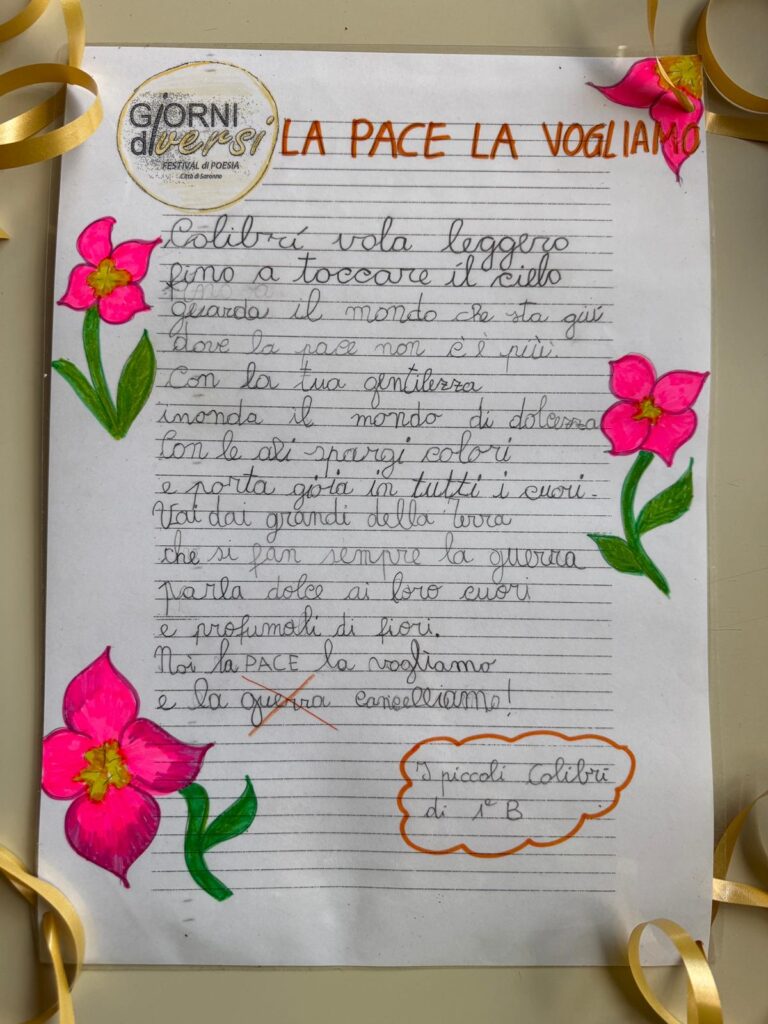 GiORNI
diversi
FESTIVAL di POESIA
Città di Saronno
LA PACE LA VOGLIAMO
Colibrí vola leggero
fino a toccare il cielo
guarda il mondo che sta giú
dove la pace non c'è più.
Con la tua gentilezza
inonda il mondo di dolcezza
Con le ali spargi colori
e porta gioia in tutti i cuori.
Vai dai grandi della Terra
che si fan sempre la guerra
parla dolce ai loro cuori
e profumali di fiori.
Noi la PACE la vogliamo
e la guerra cancelliamo!
I piccoli Colibrí
di 1ª B